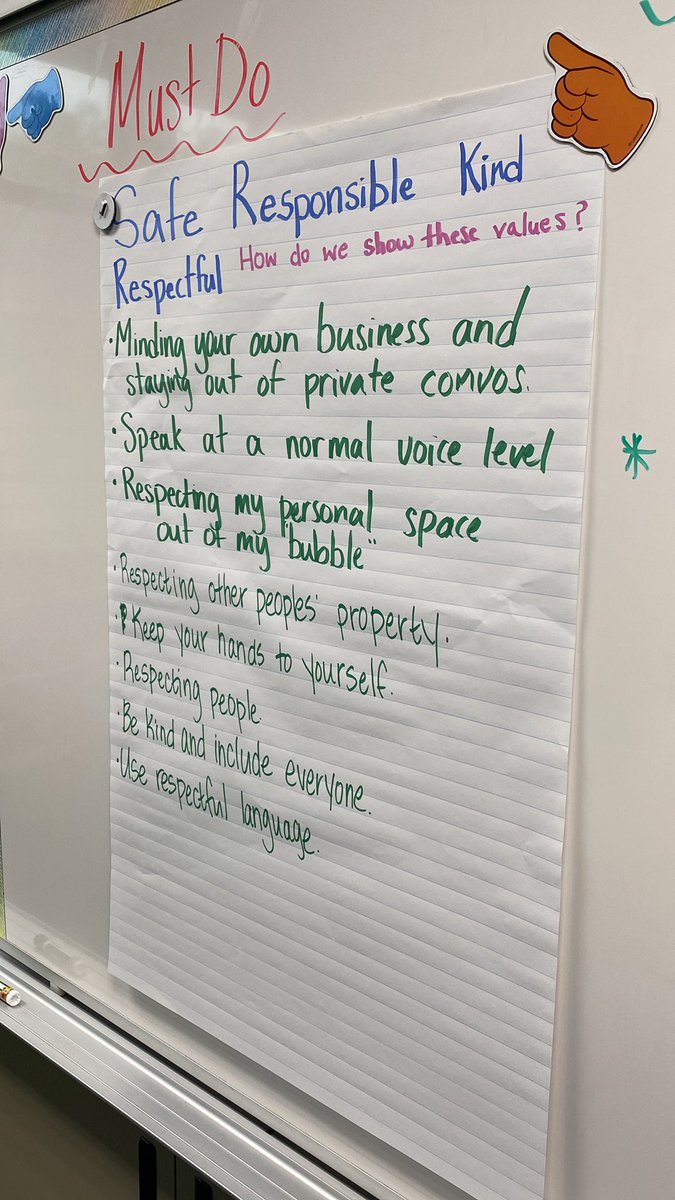 Must Do
Safe Responsible Kind
Respectful How do we show these values?
·Minding your own business and
staying out of private convos.
·Speak at a normal voice level
·Respecting my personal space
out of my "bubble"
·Respecting other peoples' property.
·Keep your hands to yourself.
·Respecting people
·Be kind and include everyone.
·Use respectful language.